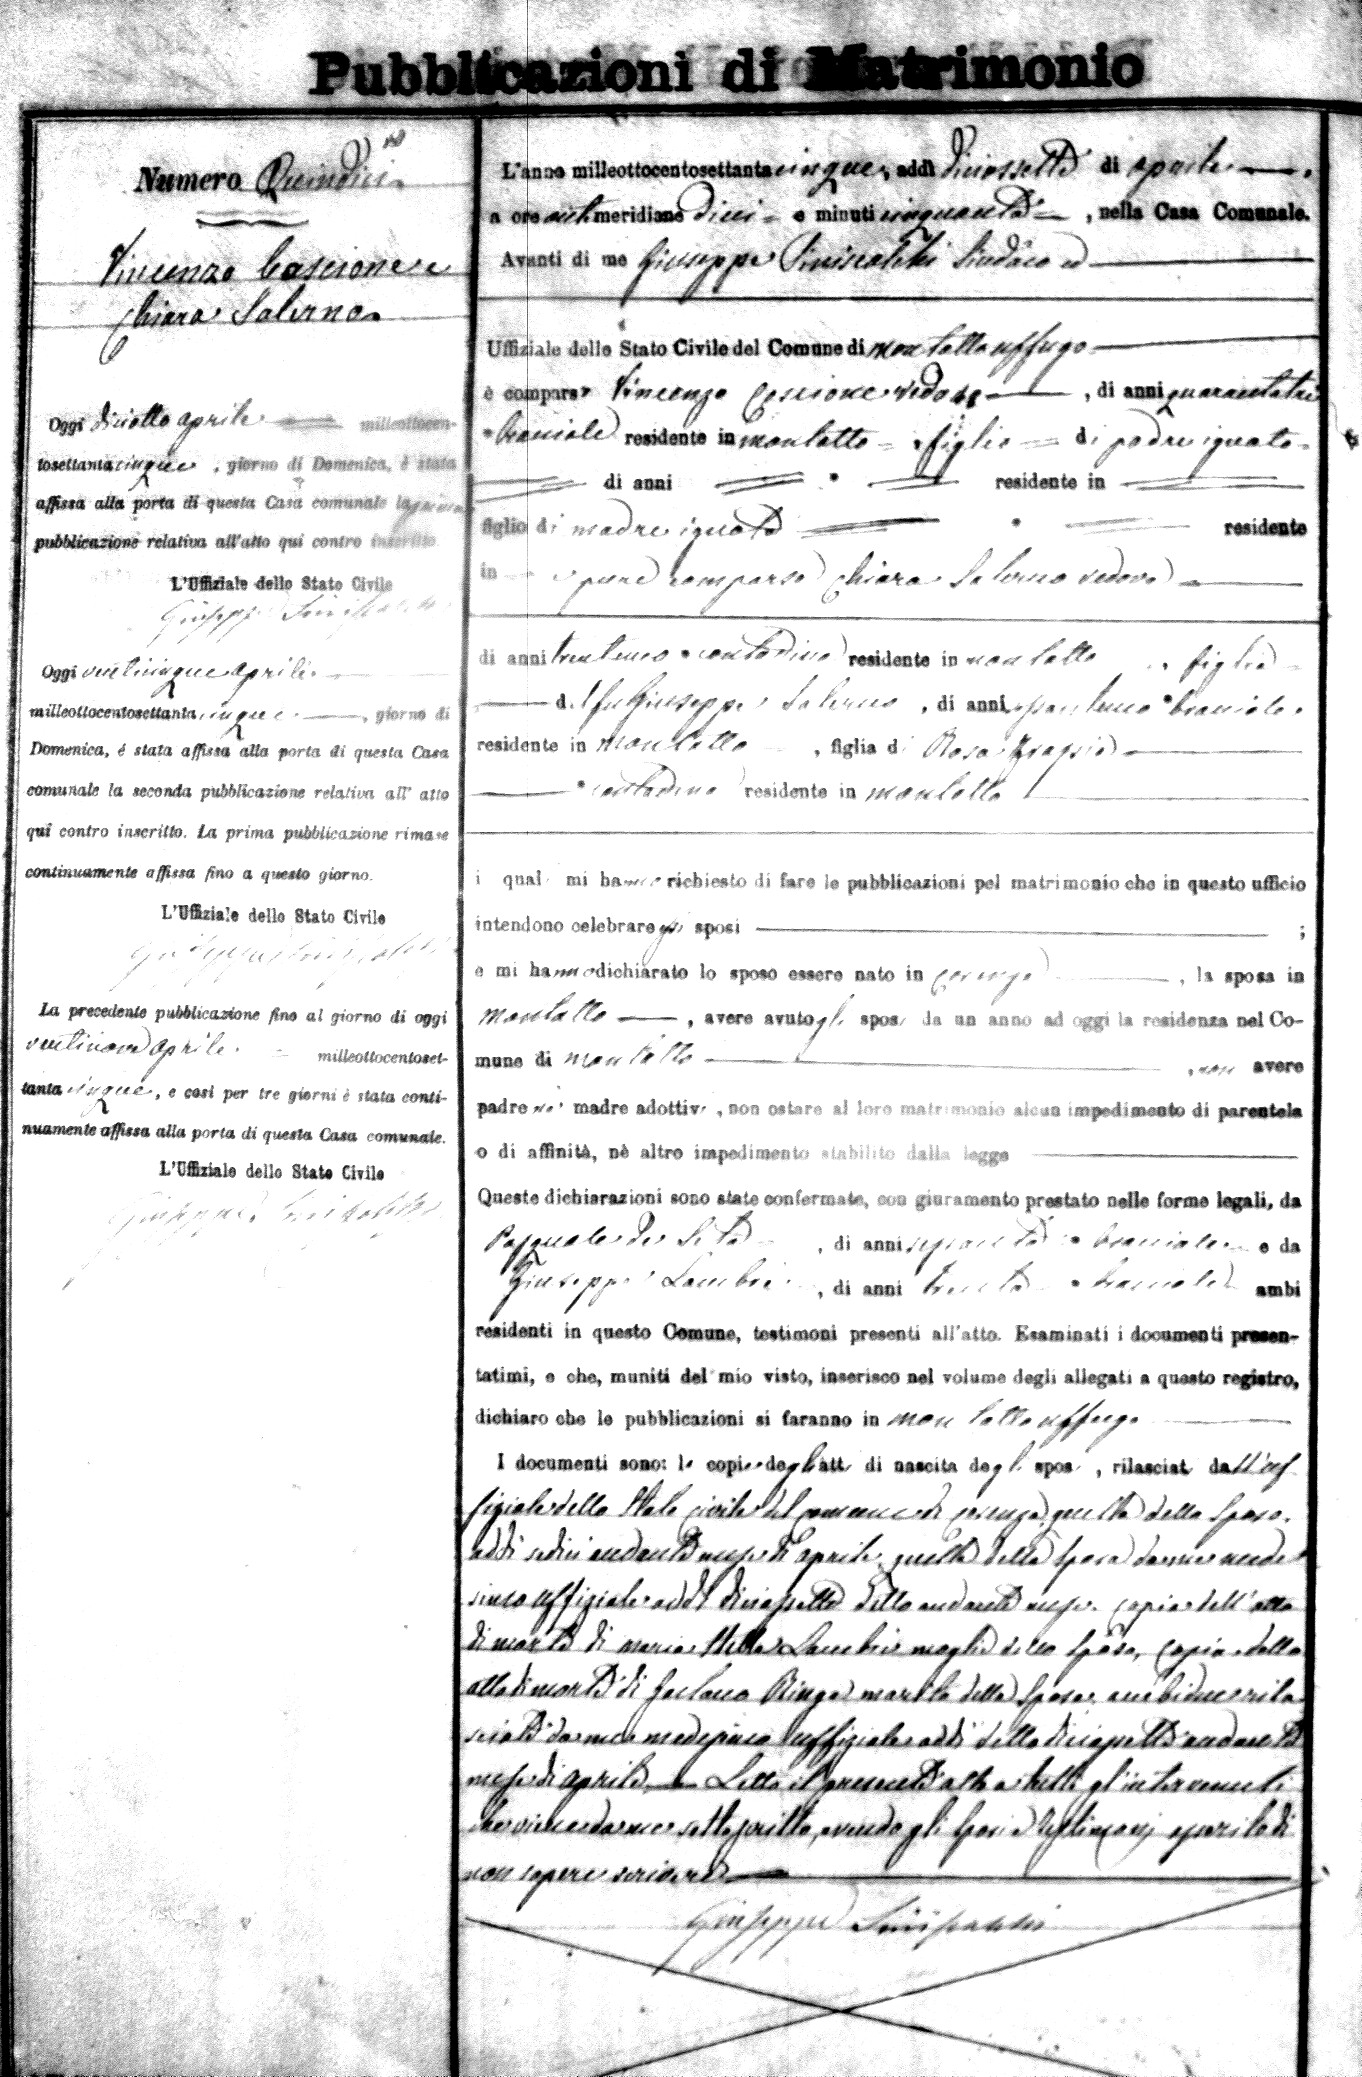 Pubblicazioni di Matrimonio
Numero Quindici
Vincenzo Cascione e
Chiara Salerno
Oggi diciotto aprile milleottocen-
tosettanta cinque, giorno di Domenica, è stata
affissa alla porta di questa Casa comunale la prima
pubblicazione relativa all'atto qui contro inscritto.
L'Uffiziale dello Stato Civile
Giuseppe
Oggi venticinque aprile
milleottocentosettanta cinque, giorno di
Domenica, è stata affissa alla porta di questa Casa
comunale la seconda pubblicazione relativa all' atto
qui contro inscritto. La prima pubblicazione rimase
continuamente affissa fino a questo giorno.
L'Uffiziale dello Stato Civile
La precedente pubblicazione fino al giorno di oggi
ventinove aprile milleottocentoset-
tanta cinque, e così per tre giorni è stata conti-
nuamente affissa alla porta di questa Casa comunale.
L'Uffiziale dello Stato Civile
Giuseppe
L'anno milleottocentosettanta cinque, addì diciassette di aprile
a ore antimeridiane dieci e minuti cinquanta, nella Casa Comunale.
Avanti di me Giuseppe Siniscalchi Sindaco ed
Uffiziale dello Stato Civile del Comune di Montalto Uffugo
è comparso Vincenzo Cascione vedovo, di anni quarantatre
bracciale residente in Montalto figlio di padre ignoto
di anni residente in
figlio di madre ignota residente
in e pure comparsa Chiara Salerno vedova
di anni trentuno contadina residente in Montalto figlia
del fu Giuseppe Salerno, di anni bracciale
residente in Montalto, figlia di Rosa
contadina residente in Montalto
i quali mi hanno richiesto di fare le pubblicazioni pel matrimonio che in questo ufficio
intendono celebrare essi sposi ;
e mi hanno dichiarato lo sposo essere nato in Cosenza, la sposa in
Montalto, avere avuto gli sposi da un anno ad oggi la residenza nel Co-
mune di Montalto, non avere
padre nè madre adottivi, non ostare al loro matrimonio alcun impedimento di parentela
o di affinità, nè altro impedimento stabilito dalla legge
Queste dichiarazioni sono state confermate, con giuramento prestato nelle forme legali, da
Pasquale De Seta, di anni bracciale e da
Giuseppe Lambri, di anni trenta bracciale ambi
residenti in questo Comune, testimoni presenti all'atto. Esaminati i documenti presen-
tatimi, e che, muniti del mio visto, inserisco nel volume degli allegati a questo registro,
dichiaro che le pubblicazioni si faranno in Montalto Uffugo
I documenti sono: le copie degli atti di nascita degli sposi, rilasciati dall'uf
fiziale dello Stato Civile del Comune di Cosenza quella dello sposo
addì sedici andante mese di aprile, quella della sposa da me mede
simo uffiziale addì diciassette detto andante mese. Copia dell'atto
di morte di Maria Stella Lambri moglie dello sposo, copia dello
atto di morte di Gaetano Ringa marito della sposa, ambidue rila
sciati da me medesimo uffiziale addì detto diciassette andante
mese di aprile Letto il presente atto a tutti gl'intervenuti
che viene da me sottoscritto, avendo gli sposi e testimonj asserito di
non sapere scrivere
Giuseppe Siniscalchi